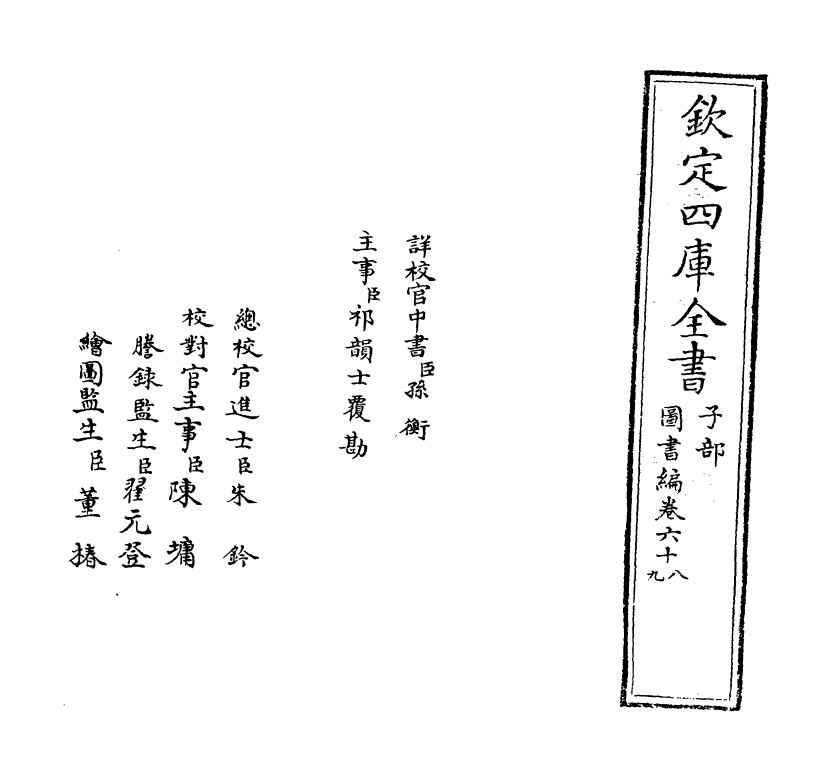 欽定四庫全書
子部
圖書編卷六十八九
詳校官中書臣孫衡
主事臣祁韻士覆勘
總校官進士臣朱鈐
校對官主事臣陳墉
謄錄監生臣翟元登
繪圖監生臣董椿